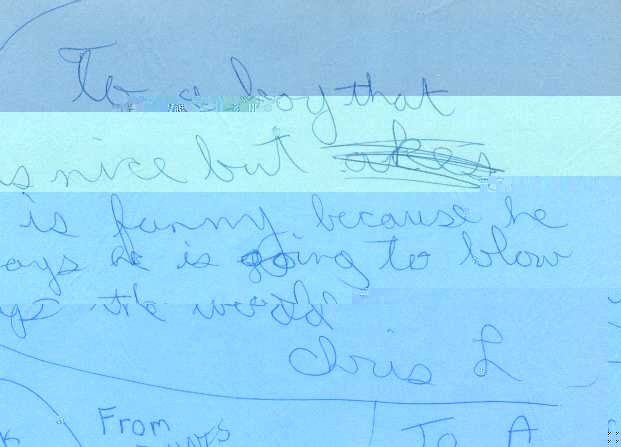 To a boy that
is nice but
is funny because he
says he is going to blow
up the world
Chris L
From
To A